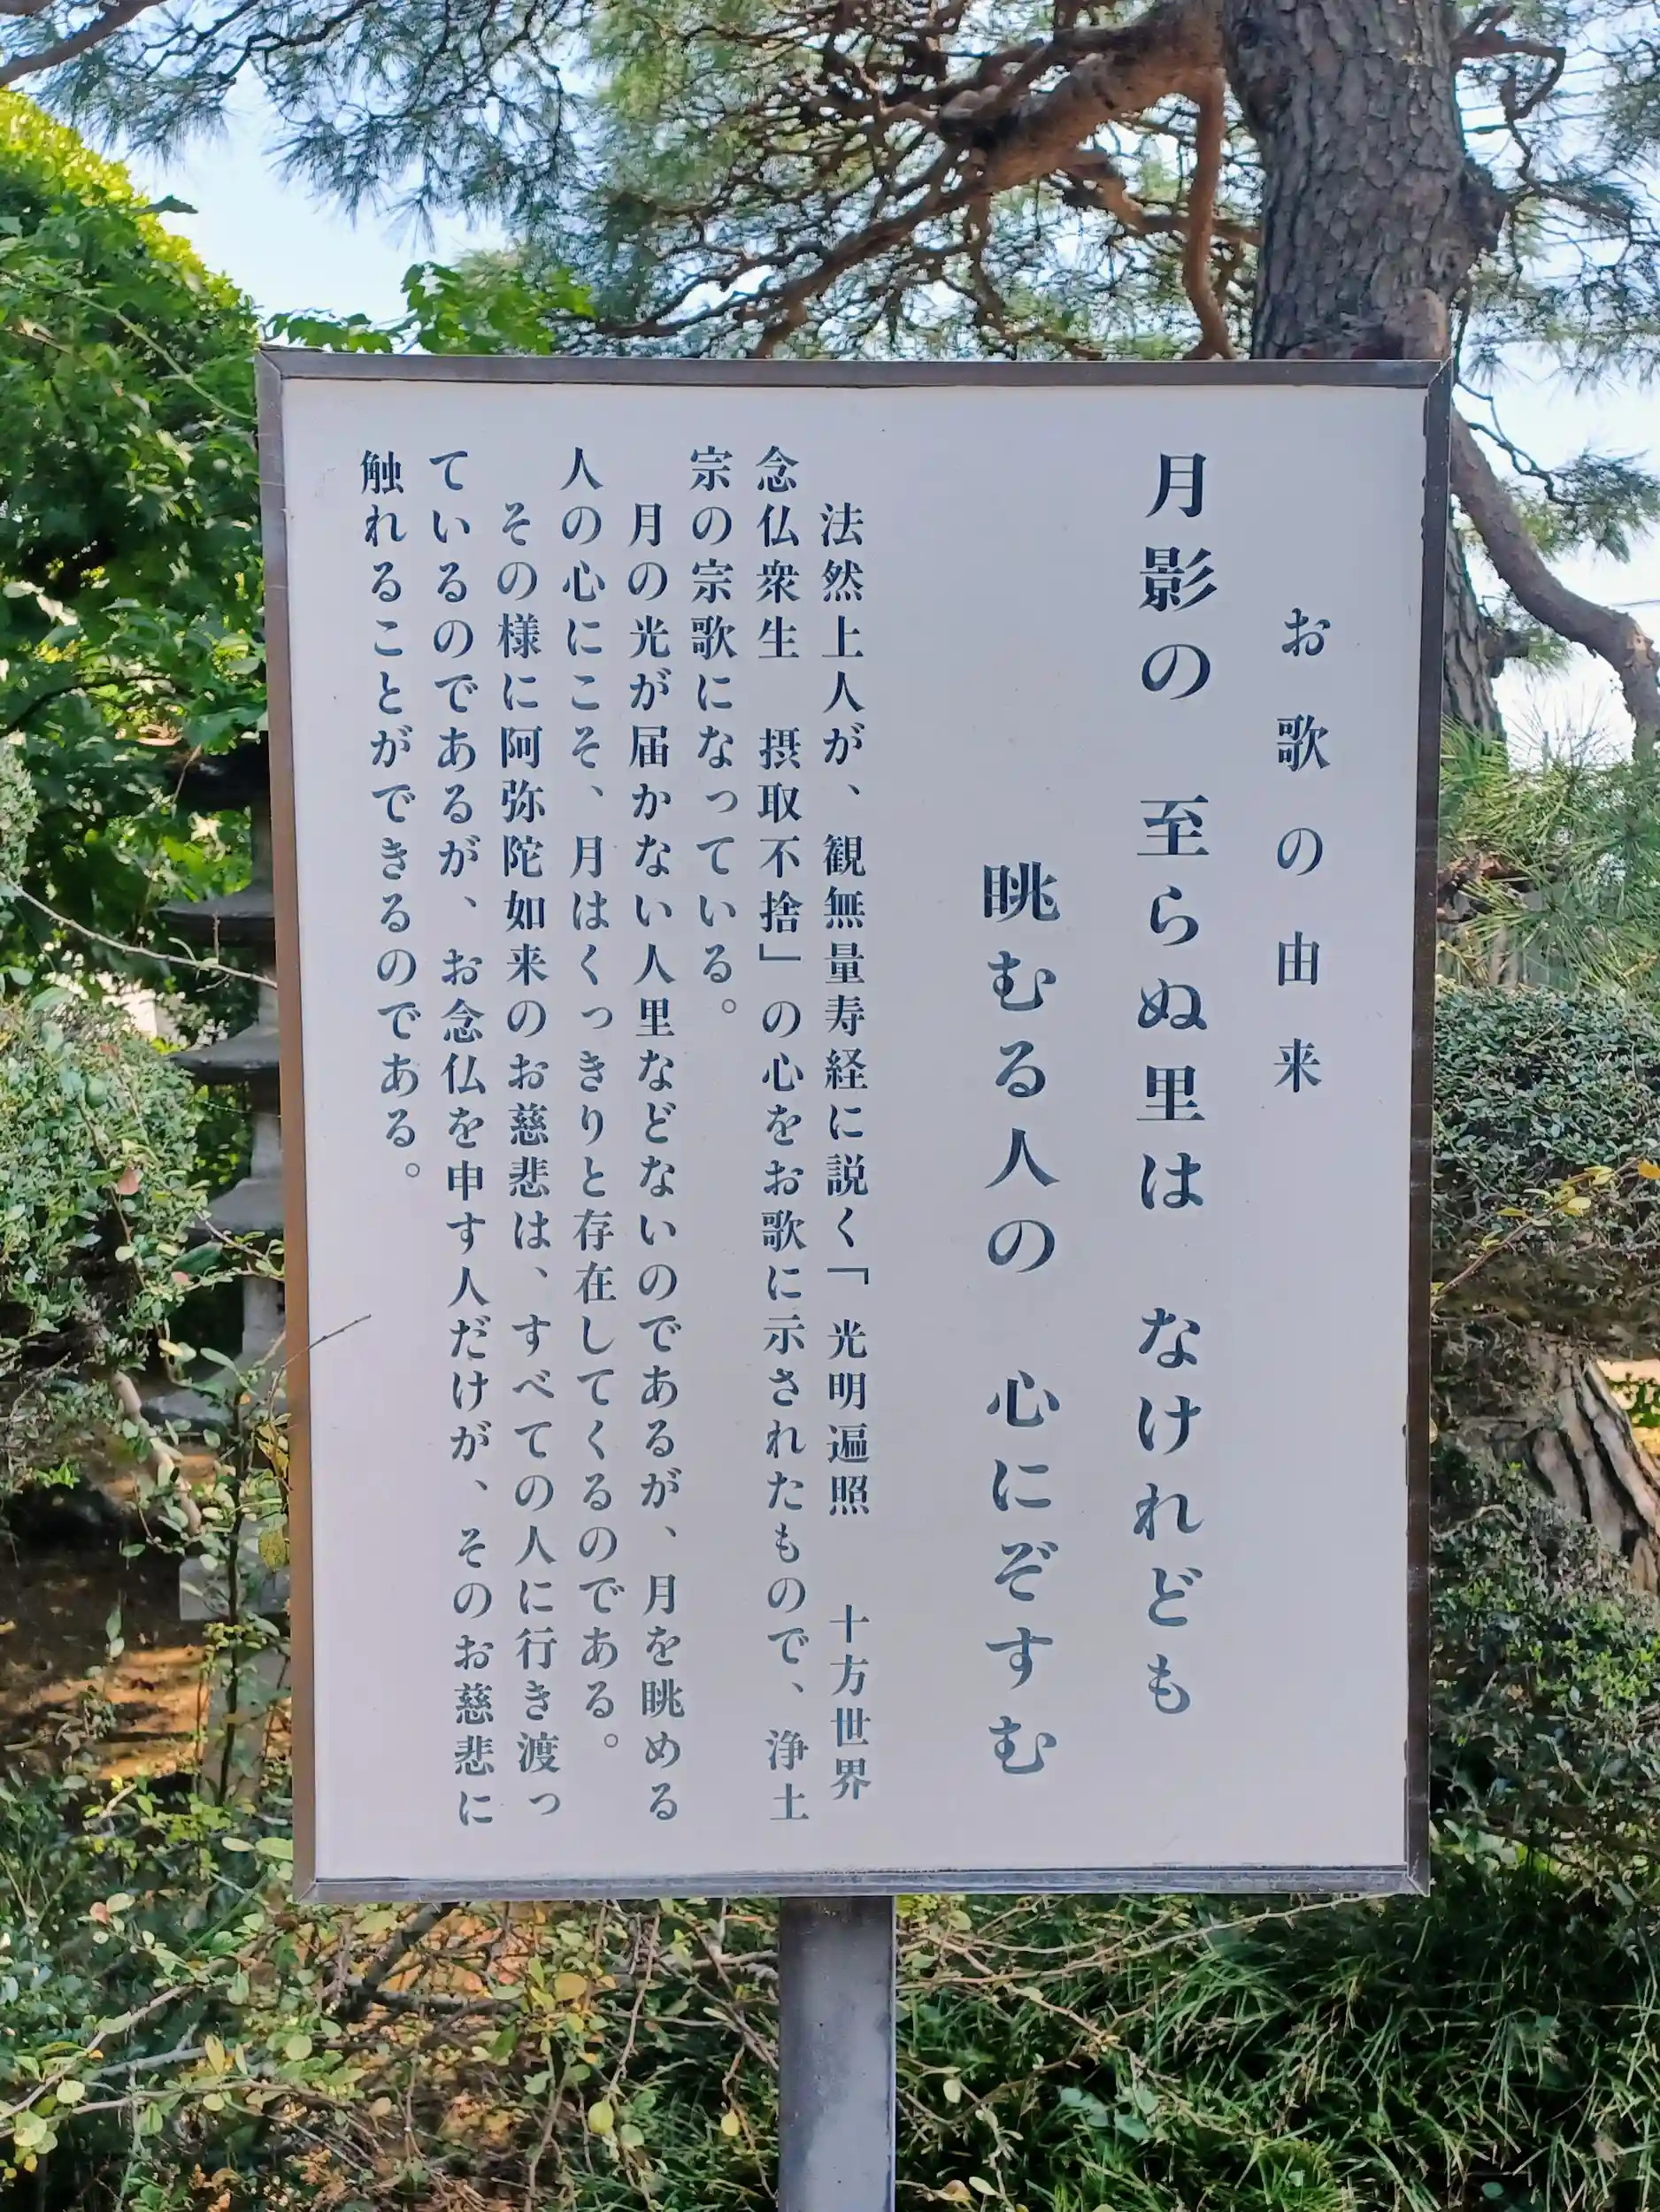 お歌の由来
月影の　至らぬ里は　なけれども
眺むる人の　心にぞすむ
法然上人が、観無量寿経に説く「光明遍照　十方世界
念仏衆生　摂取不捨」の心をお歌に示されたもので、浄土
宗の宗歌になっている。
月の光が届かない人里などないのであるが、月を眺める
人の心にこそ、月はくっきりと存在してくるのである。
その様に阿弥陀如来のお慈悲は、すべての人に行き渡っ
ているのであるが、お念仏を申す人だけが、そのお慈悲に
触れることができるのである。